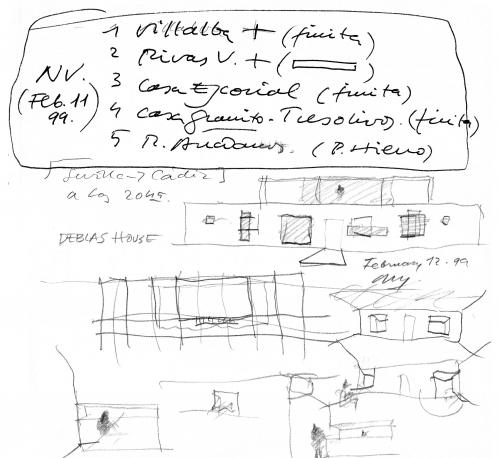 NV.
(Feb. 11
99.)
1 Villalba + (finita)
2 Rivas V. + ( )
3 Casa Escorial (finita)
4 casa granito - Tresolivos. (finita)
5 R.
[Sevilla → Cadiz]
a las 20
DEBLAS HOUSE
February 12. 99